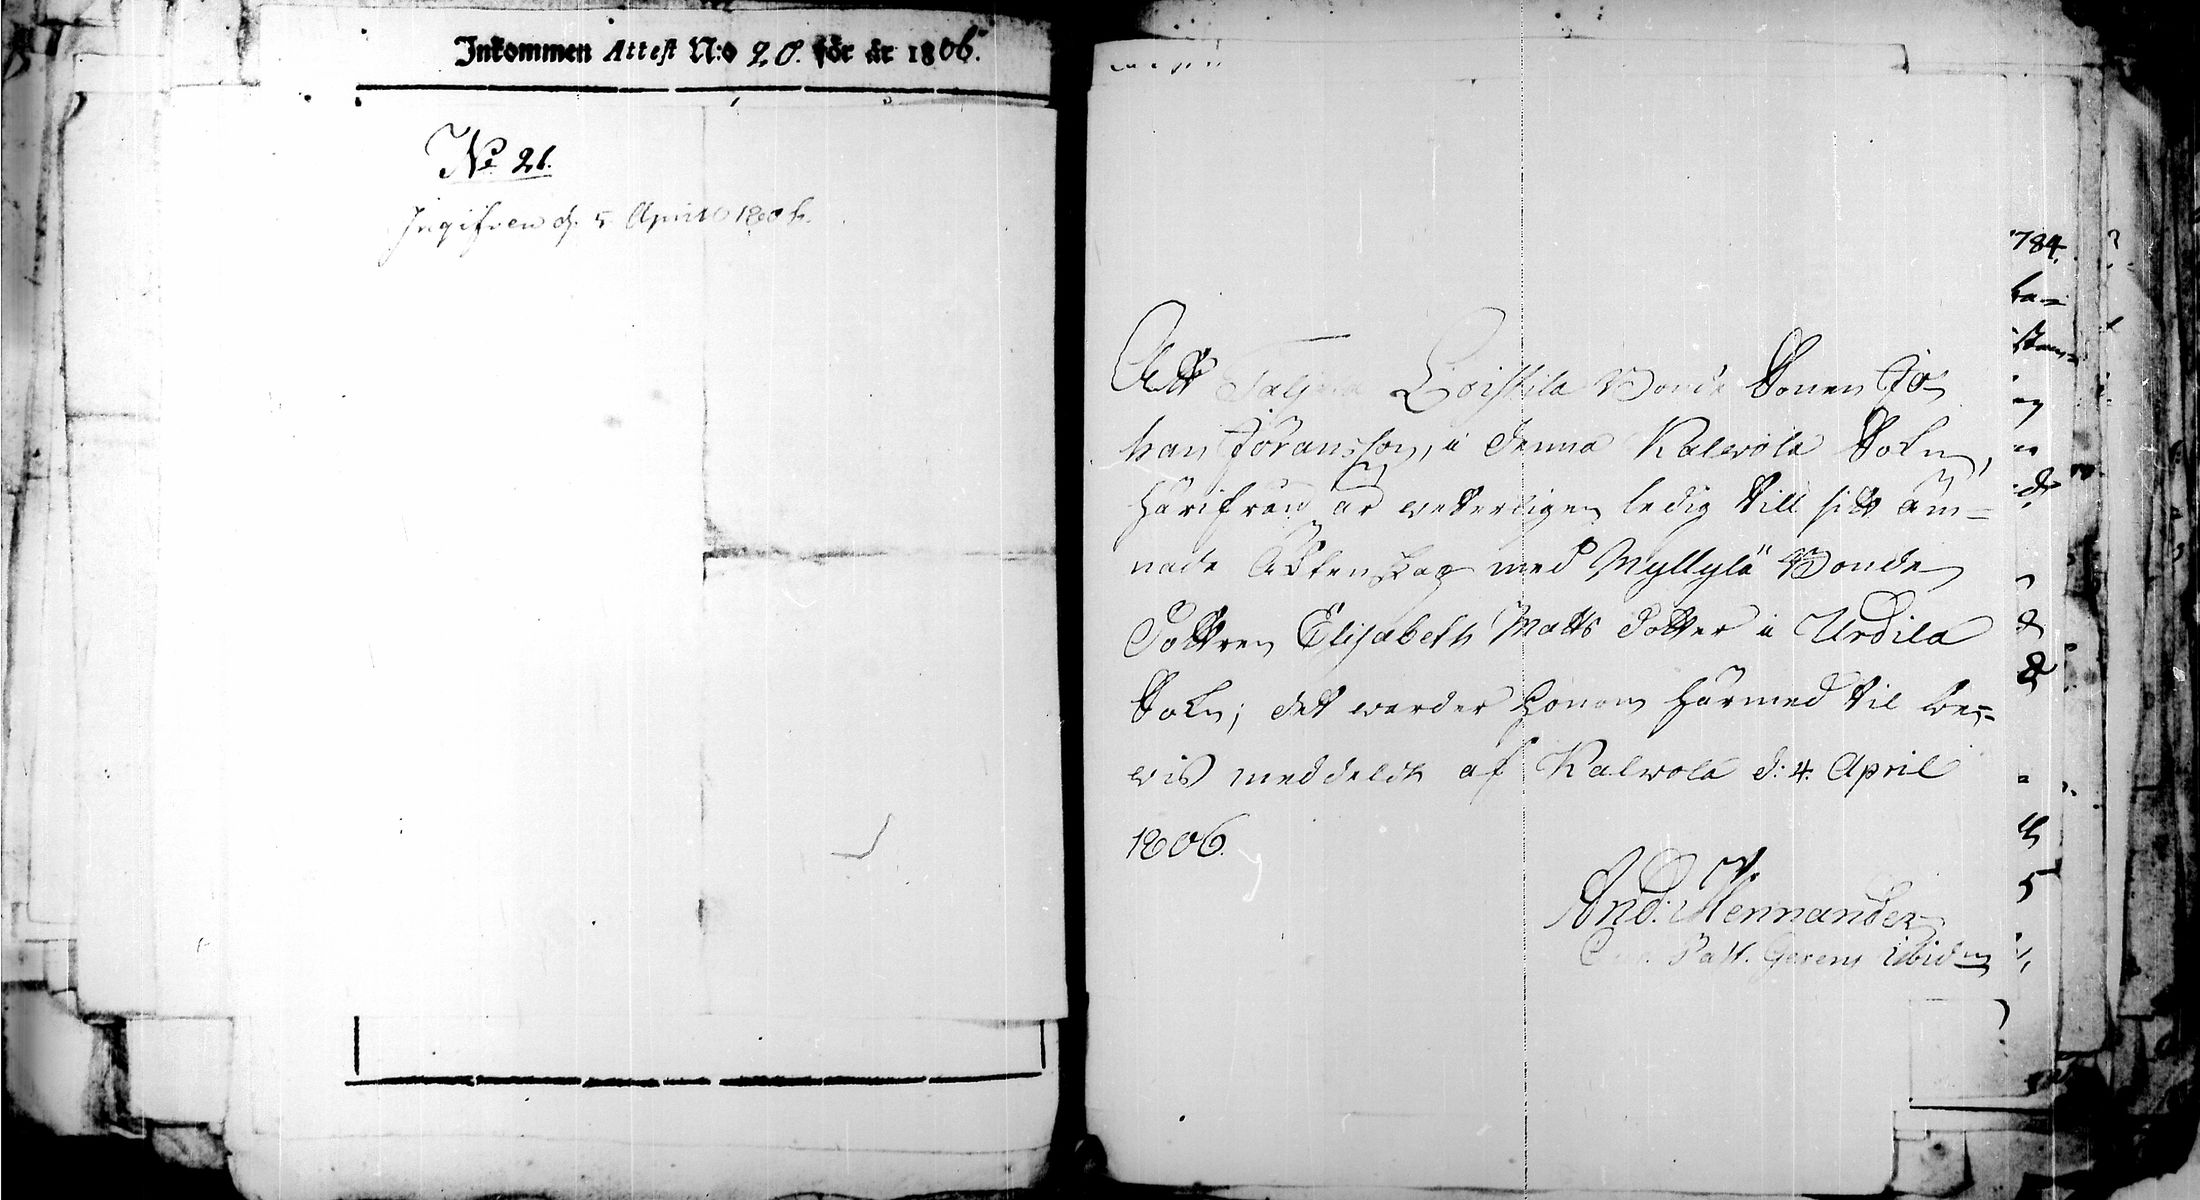 Inkommen Attest N:o 20. för år 1806.
No 21.
Ingifven d. 5 April 1806.
Att Taljala Loistila Bonde Sonen Jo-
han Johansson, i denna Kalvola Sokn,
härifrån är vetterligen ledig till sitt äm-
nade Äktenskap med Myllylä Bonde
Dottren Elisabeth Matts dotter i Urdiala
Sokn; det warder honom härmed til be-
wis meddeldt af Kalvola d: 4. April
1806.
And: Mennander
Past. Gerens ibidem
784.